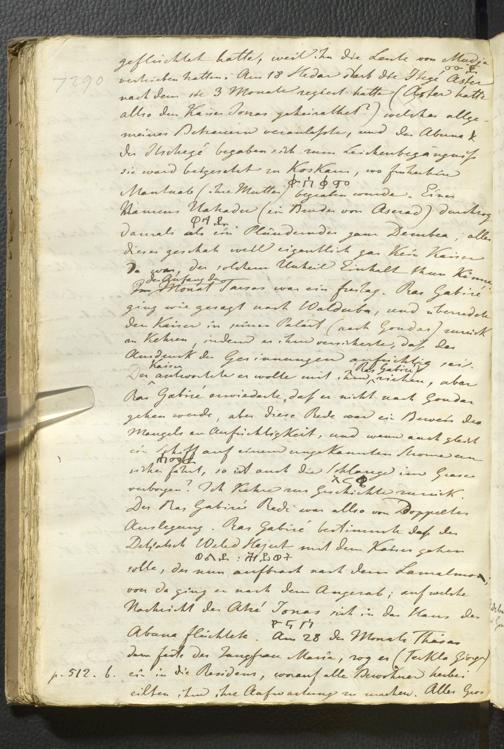 7290
geflüchtet hatte, weil ihn die Leute von
vertrieben hatten. Am 18 Hedar starb die Itegé Aster
nachdem sie 3 Monate regiert hatte (Aster hatte
also den Kaiser Jonas geheirathet?) welches allge-
meines Betrauern veranlasste, und der Abuna &
der Etschegé begaben sich zum Leichenbegängniss
sie ward beigesetzt zu Koskam, wo früherhin
Mantuab (ihre Mutter) begraben wurde. Einer
Namens Nakadu (ein Bruder von Aserad) durchzog
damals als ein Plündernder ganz Dembea, alles
dieses geschah weil eigentlich gar kein Kaiser
da war, der solchem Unheil Einhalt thun könne
der Anfang des
Monat Tarsas war ein freitag. Ras Gabrié
ging wie gesagt nach Waldubba, und überredete
den Kaiser in seinen Palast (nach Gondar) zurück
zu kehren, indem er ihm versicherte, dass das
Ausdruck der Gesinnungen aufrichtig sei.
Kaiser Ras Gabrié
Der antwortete er wolle mit ihm ziehen, aber
Ras Gabrié erwiederte, dass er nicht nach Gondar
gehen werde, aber diese Rede war ein Beweis des
Mangels an Aufrichtigkeit, und wenn auch gleich
ein Schiff auf einem ungekannten Strome
sicher fährt, so ist auch die Schlange im Grase
verborgen? Ich kehre zur Geschichte zurück.
Des Ras Gabrié Rede war also von Doppelter
Auslegung. Ras Gabrié bestimmte dass der
Weled Hajut mit dem Kaiser gehen
solle, der nun aufbrach nach dem Lamalmon,
von da ging er nach dem Angerab; auf welche
Nachricht der Atsé Jonas sich in das Haus des
Abuna flüchtete. Am 28 des Monats Thasas
dem feste der Jungfrau Maria, zog er (Teckla Görges)
p. 512. b. ein in die Residenz, worauf alle Bewohner herbei
eilten ihm ihre Aufwartung zu machen. Alles